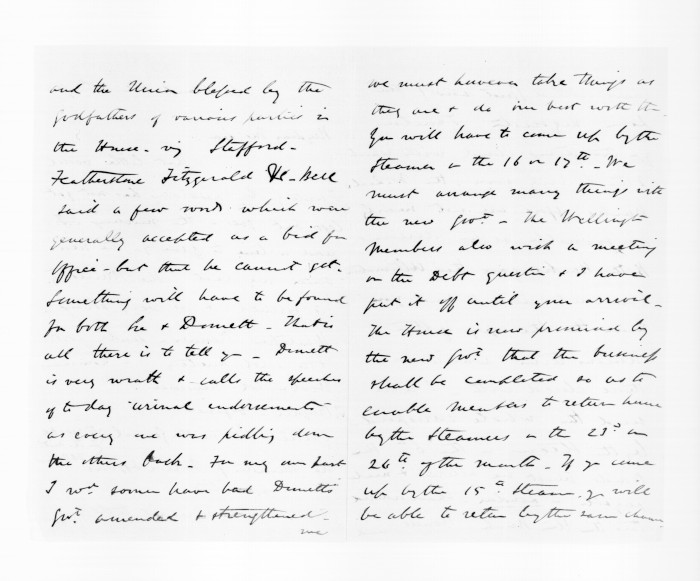 and the Union blessed by the
godfathers of various parties in
the House - viz Stafford -
Featherston Fitzgerald &c - Bell
said a few words which were
generally accepted as a bid for
office - but that he cannot get.
Something will have to be found
for both he & Domett - That is
all there is to tell yo - Domett
is very wrath & calls the speeches
of to day urinal endorsements
as every one was pidling down
the others back. For my own part
I wd. sooner have had Domett's
Govt. amended & strengthened -
we
we must however take things as
they are & do our best with
You will have to come up by the
Steamer on the 16 or 17th. - We
must arrange many things with
the new Govt. - The Wellington
Members also wish a meeting
on the Debt question & I have
put it off until your arrival -
The House is now promised by
the new Govt. that the business
shall be completed so as to
enable members to return home
by the Steamers on the 23d or
26th of the month - If yo come
up by the 15th Steamer yo will
be able to return by the same